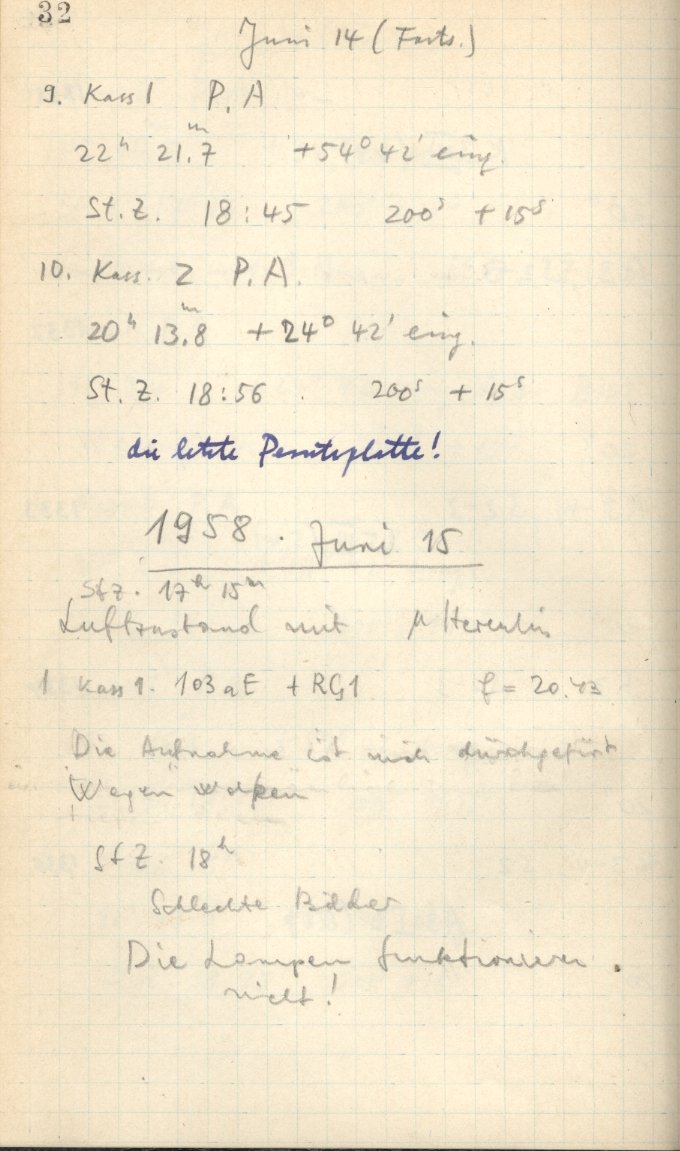 32
Juni 14 (Forts.)
9. Kass 1 P. A
22ʰ 21.ᵐ7 +54° 42' eing.
St. Z. 18:45 200ˢ +15ˢ
10. Kass. 2 P. A.
20ʰ 13.ᵐ8 +24° 42' eing.
St. Z. 18:56 200ˢ + 15ˢ
die letzte platte!
1958. Juni 15
StZ. 17ʰ 15ᵐ
Luftzustand mit μ Herculis
1 Kass 1. 103aE + RG1 f = 20.43
Die Aufnahme ist nich durchgefürt
Wegen wolken
StZ. 18ʰ
Schlechte Bilder
Die Lampen funktionieren
nicht!